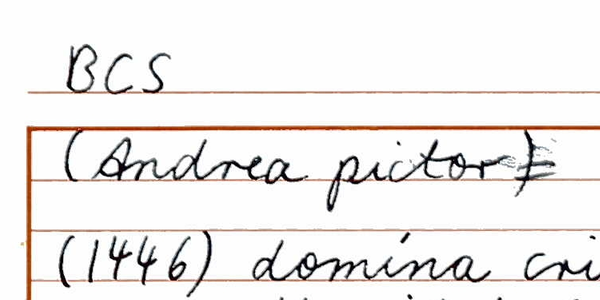 BCS
(Andrea pictor)
(1446) domína cri